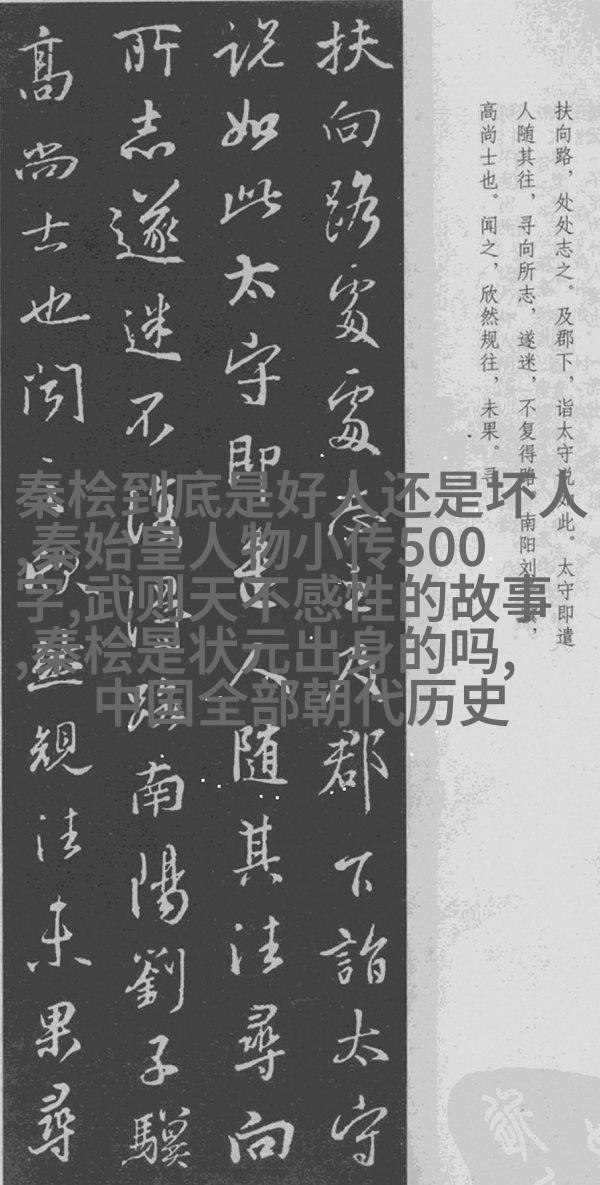 扶向路，处处志之。及郡下，诣太守说如此。太守即遣
人随其往，寻向所志，遂迷，不复得路。南阳刘
高尚士也。闻之，欣然规往，未果。寻
扶向路處處志之及郡下詣太守
説如此太守即遣人随其往尋向
所志遂迷不復得路南陽劉子驥
高尚士也闻之欣然規往未果尋
秦桧到底是好人还是坏人
,秦始皇人物小传500
字,武则天不感性的故事
,秦桧是状元出身的吗,
中国全部朝代历史